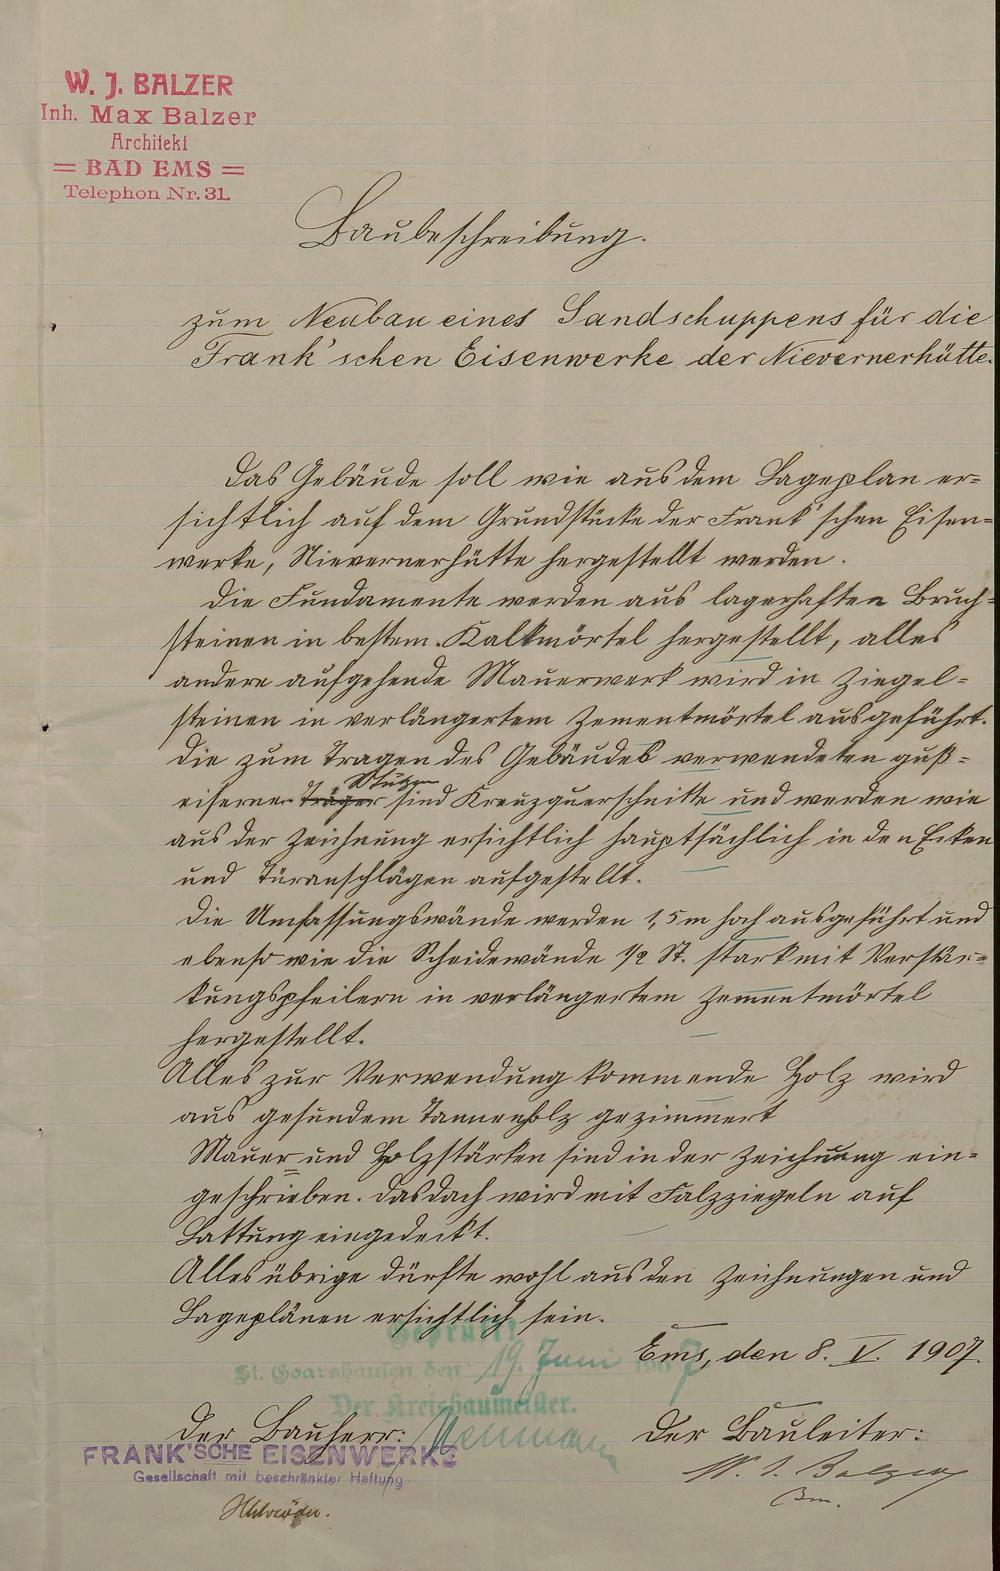 W. J. BALZER
Inh. Max Balzer
Architekt
= BAD EMS =
Telephon Nr. 31.
Baubeschreibung.
zum Neubau eines Sandschuppens für die
Frank'schen Eisenwerke der Nievernerhütte.
Das Gebäude soll wie aus dem Lageplan er=
sichtlich auf dem Grundstücke der Frank'schen Eisen=
werke, Nievernerhütte hergestellt werden.
Die Fundamente werden aus lagerhaften Bruch=
steinen in bestem Kalkmörtel hergestellt, alles
andere aufgehende Mauerwerk wird in Ziegel=
steinen in verlängertem Zementmörtel ausgeführt.
Die zum Tragen des Gebäudes verwendeten guß=
Stützen
eiserne Träger sind Kreuzquerschnitte und werden wie
aus der Zeichnung ersichtlich hauptsächlich in den Ecken
und Türanschlägen aufgestellt.
Die Umfassungswände werden 1,5 m hoch ausgeführt und
ebenso wie die Scheidewände 1/2 St. stark mit Verstär=
kungspfeilern in verlängertem Zementmörtel
hergestellt.
Alles zur Verwendung kommende Holz wird
aus gesundem Tannenholz gezimmert
Mauer= und Holzstärken sind in der Zeichnung ein=
geschrieben. Das Dach wird mit Falzziegeln auf
Lattung eingedeckt.
Alles übrige dürfte wohl aus den Zeichnungen und
Lageplänen ersichtlich sein.
Geprüft!
Ems, den 8. V. 1907.
St. Goarshausen, den 19. Juni 1907
Der Kreisbaumeister.
Der Bauherr:
Der Bauleiter:
FRANK'SCHE EISENWERKE
Gesellschaft mit beschränkter Haftung
W. J. Balzer